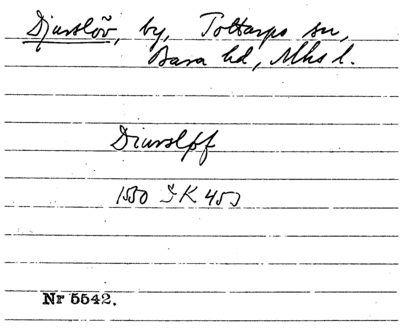 Djurslöv, by, Tottarps sn,
Bara hd, Mhs l.
Diursløff
1550 JK 453
Nr 5542.